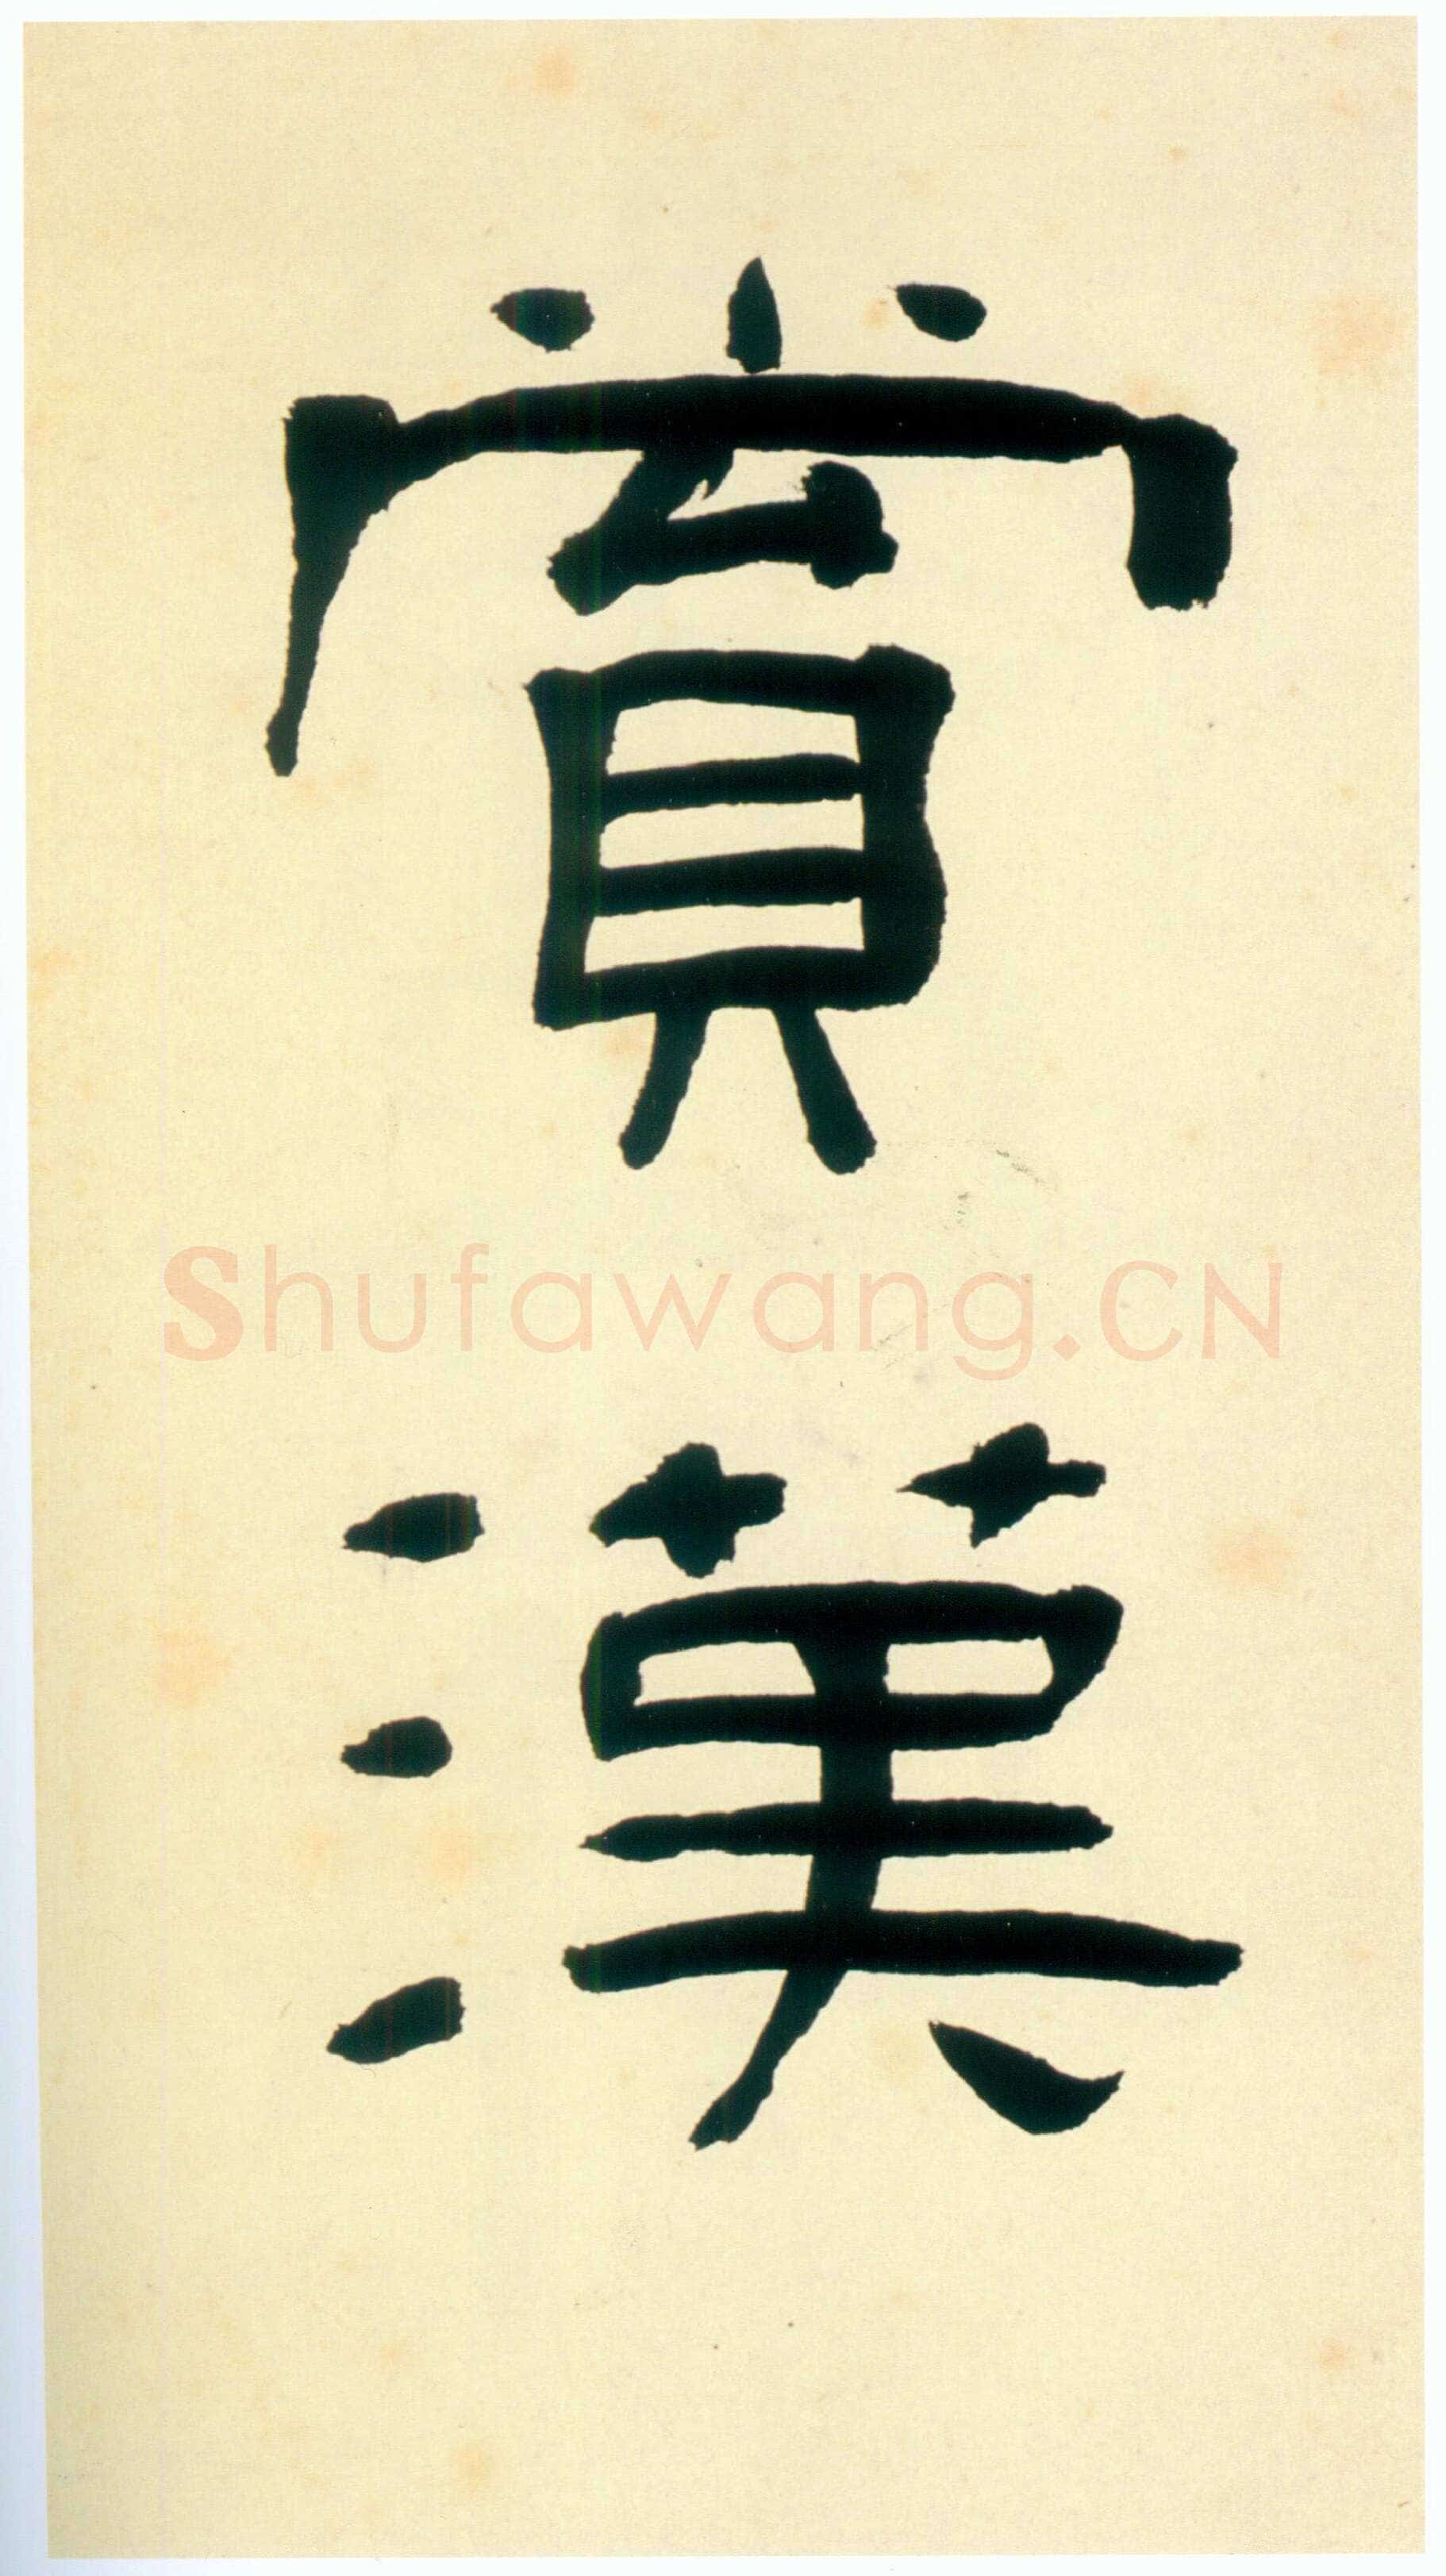 賞
漢
Shufawang.CN